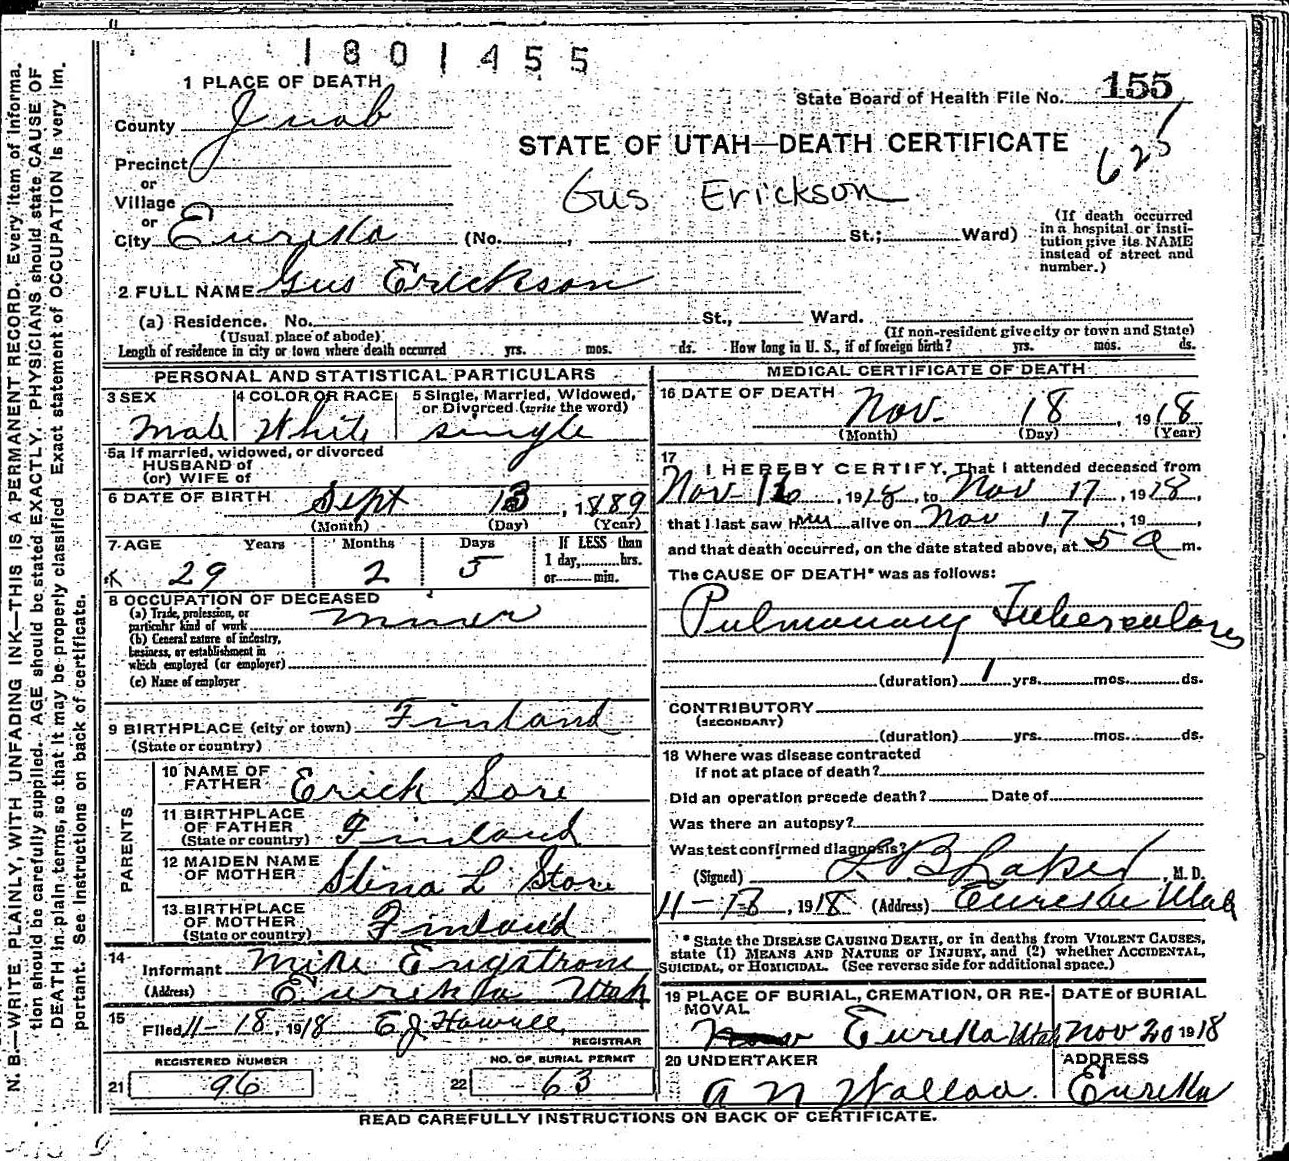 1801455
1 PLACE OF DEATH
State Board of Health File No. 155
County Juab
STATE OF UTAH—DEATH CERTIFICATE
625
Precinct
or
Village
Gus Erickson
or
City Eureka (No. , St.; Ward)
(If death occurred
in a hospital or insti-
tution give its NAME
instead of street and
number.)
2 FULL NAME Gus Erickson
(a) Residence. No. St., Ward.
(Usual place of abode)
(If non-resident give city or town and State)
Length of residence in city or town where death occurred yrs. mos. ds. How long in U. S., if of foreign birth? yrs. mos. ds.
PERSONAL AND STATISTICAL PARTICULARS
3 SEX
Male
4 COLOR OR RACE
White
5 Single, Married, Widowed,
or Divorced (write the word)
single
5a If married, widowed, or divorced
HUSBAND of
(or) WIFE of
6 DATE OF BIRTH Sept 13, 1889
(Month) (Day) (Year)
7 AGE Years Months Days
If LESS than
1 day, hrs.
or min.
29 2 5
8 OCCUPATION OF DECEASED
(a) Trade, profession, or
particular kind of work miner
(b) General nature of industry,
business, or establishment in
which employed (or employer)
(c) Name of employer
9 BIRTHPLACE (city or town) Finland
(State or country)
PARENTS
10 NAME OF
FATHER Erick Sore
11 BIRTHPLACE
OF FATHER
(State or country) Finland
12 MAIDEN NAME
OF MOTHER Stina L Store
13 BIRTHPLACE
OF MOTHER
(State or country) Finland
14
Informant Mike Engstrom
(Address) Eureka Utah
15
Filed 11-18, 1918 E J Howell
REGISTRAR
REGISTERED NUMBER
21 96
NO. OF BURIAL PERMIT
22 63
MEDICAL CERTIFICATE OF DEATH
16 DATE OF DEATH
Nov. 18, 1918
(Month) (Day) (Year)
17
I HEREBY CERTIFY, That I attended deceased from
Nov 16, 1918, to Nov 17, 1918,
that I last saw him alive on Nov 17, 19 ,
and that death occurred, on the date stated above, at 5 a m.
The CAUSE OF DEATH* was as follows:
Pulmonary Tuberculosis
(duration) 1 yrs. mos. ds.
CONTRIBUTORY
(SECONDARY)
(duration) yrs. mos. ds.
18 Where was disease contracted
if not at place of death?
Did an operation precede death? Date of
Was there an autopsy?
Was test confirmed diagnosis?
(Signed) , M. D.
11-18, 1918 (Address) Eureka Utah
* State the DISEASE CAUSING DEATH, or in deaths from VIOLENT CAUSES,
state (1) MEANS AND NATURE OF INJURY, and (2) whether ACCIDENTAL,
SUICIDAL, or HOMICIDAL. (See reverse side for additional space.)
19 PLACE OF BURIAL, CREMATION, OR RE-
MOVAL
Eureka Utah
DATE of BURIAL
Nov 20 1918
20 UNDERTAKER
A N Wallace
ADDRESS
Eureka
READ CAREFULLY INSTRUCTIONS ON BACK OF CERTIFICATE.
N. B.—WRITE PLAINLY, WITH UNFADING INK—THIS IS A PERMANENT RECORD. Every item of informa-
tion should be carefully supplied. AGE should be stated EXACTLY. PHYSICIANS should state CAUSE OF
DEATH in plain terms, so that it may be properly classified. Exact statement of OCCUPATION is very im-
portant. See instructions on back of certificate.